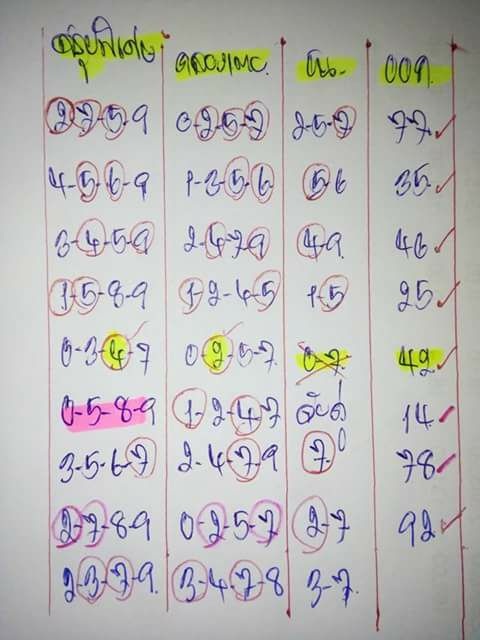 2-7-5-9 0-2-5-7 2-5-7 77
4-5-6-9 1-3-5-6 56 35
3-4-5-9 2-4-7-9 49 46
1-5-8-9 1-2-4-5 1-5 25
0-3-4-7 0-2-5-7 0-7 42
0-5-8-9 1-2-4-7 14
3-5-6-7 2-4-7-9 7 78
2-7-8-9 0-2-5-7 2-7 92
2-3-7-9 3-4-7-8 3-7